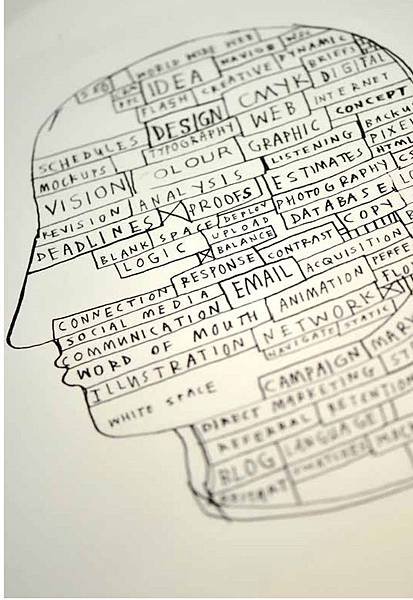 WORLD WIDE WEB
IDEA NAVIGR
DYNAMIC
FLASH CREATIVE BRIEFS
DESIGN CMYK DIGITAL
SCHEDULES TYPOGRAPHY WEB INTERNET
MOCKUPS OLOUR GRAPHIC CONCEPT
VISION ANALYSIS LISTENING BACKU
REVISION PROOFS ESTIMATES PIXE
DEADLINES DEPLOY PHOTOGRAPHY HTML
BLANK SPACE UPLOAD DATABASE LO
LOGIC BALANCE COPY
CONNECTION RESPONSE CONTRAST
SOCIAL MEDIA EMAIL ACQUISITION
COMMUNICATION ANIMATION PERFE
WORD OF MOUTH NETWORK FLO
ILLUSTRATION NAVIGATE STATIC
WHITE SPACE CAMPAIGN MAR
DIRECT MARKETING
REFERRAL RETENTION
BLOG LANGUAGE